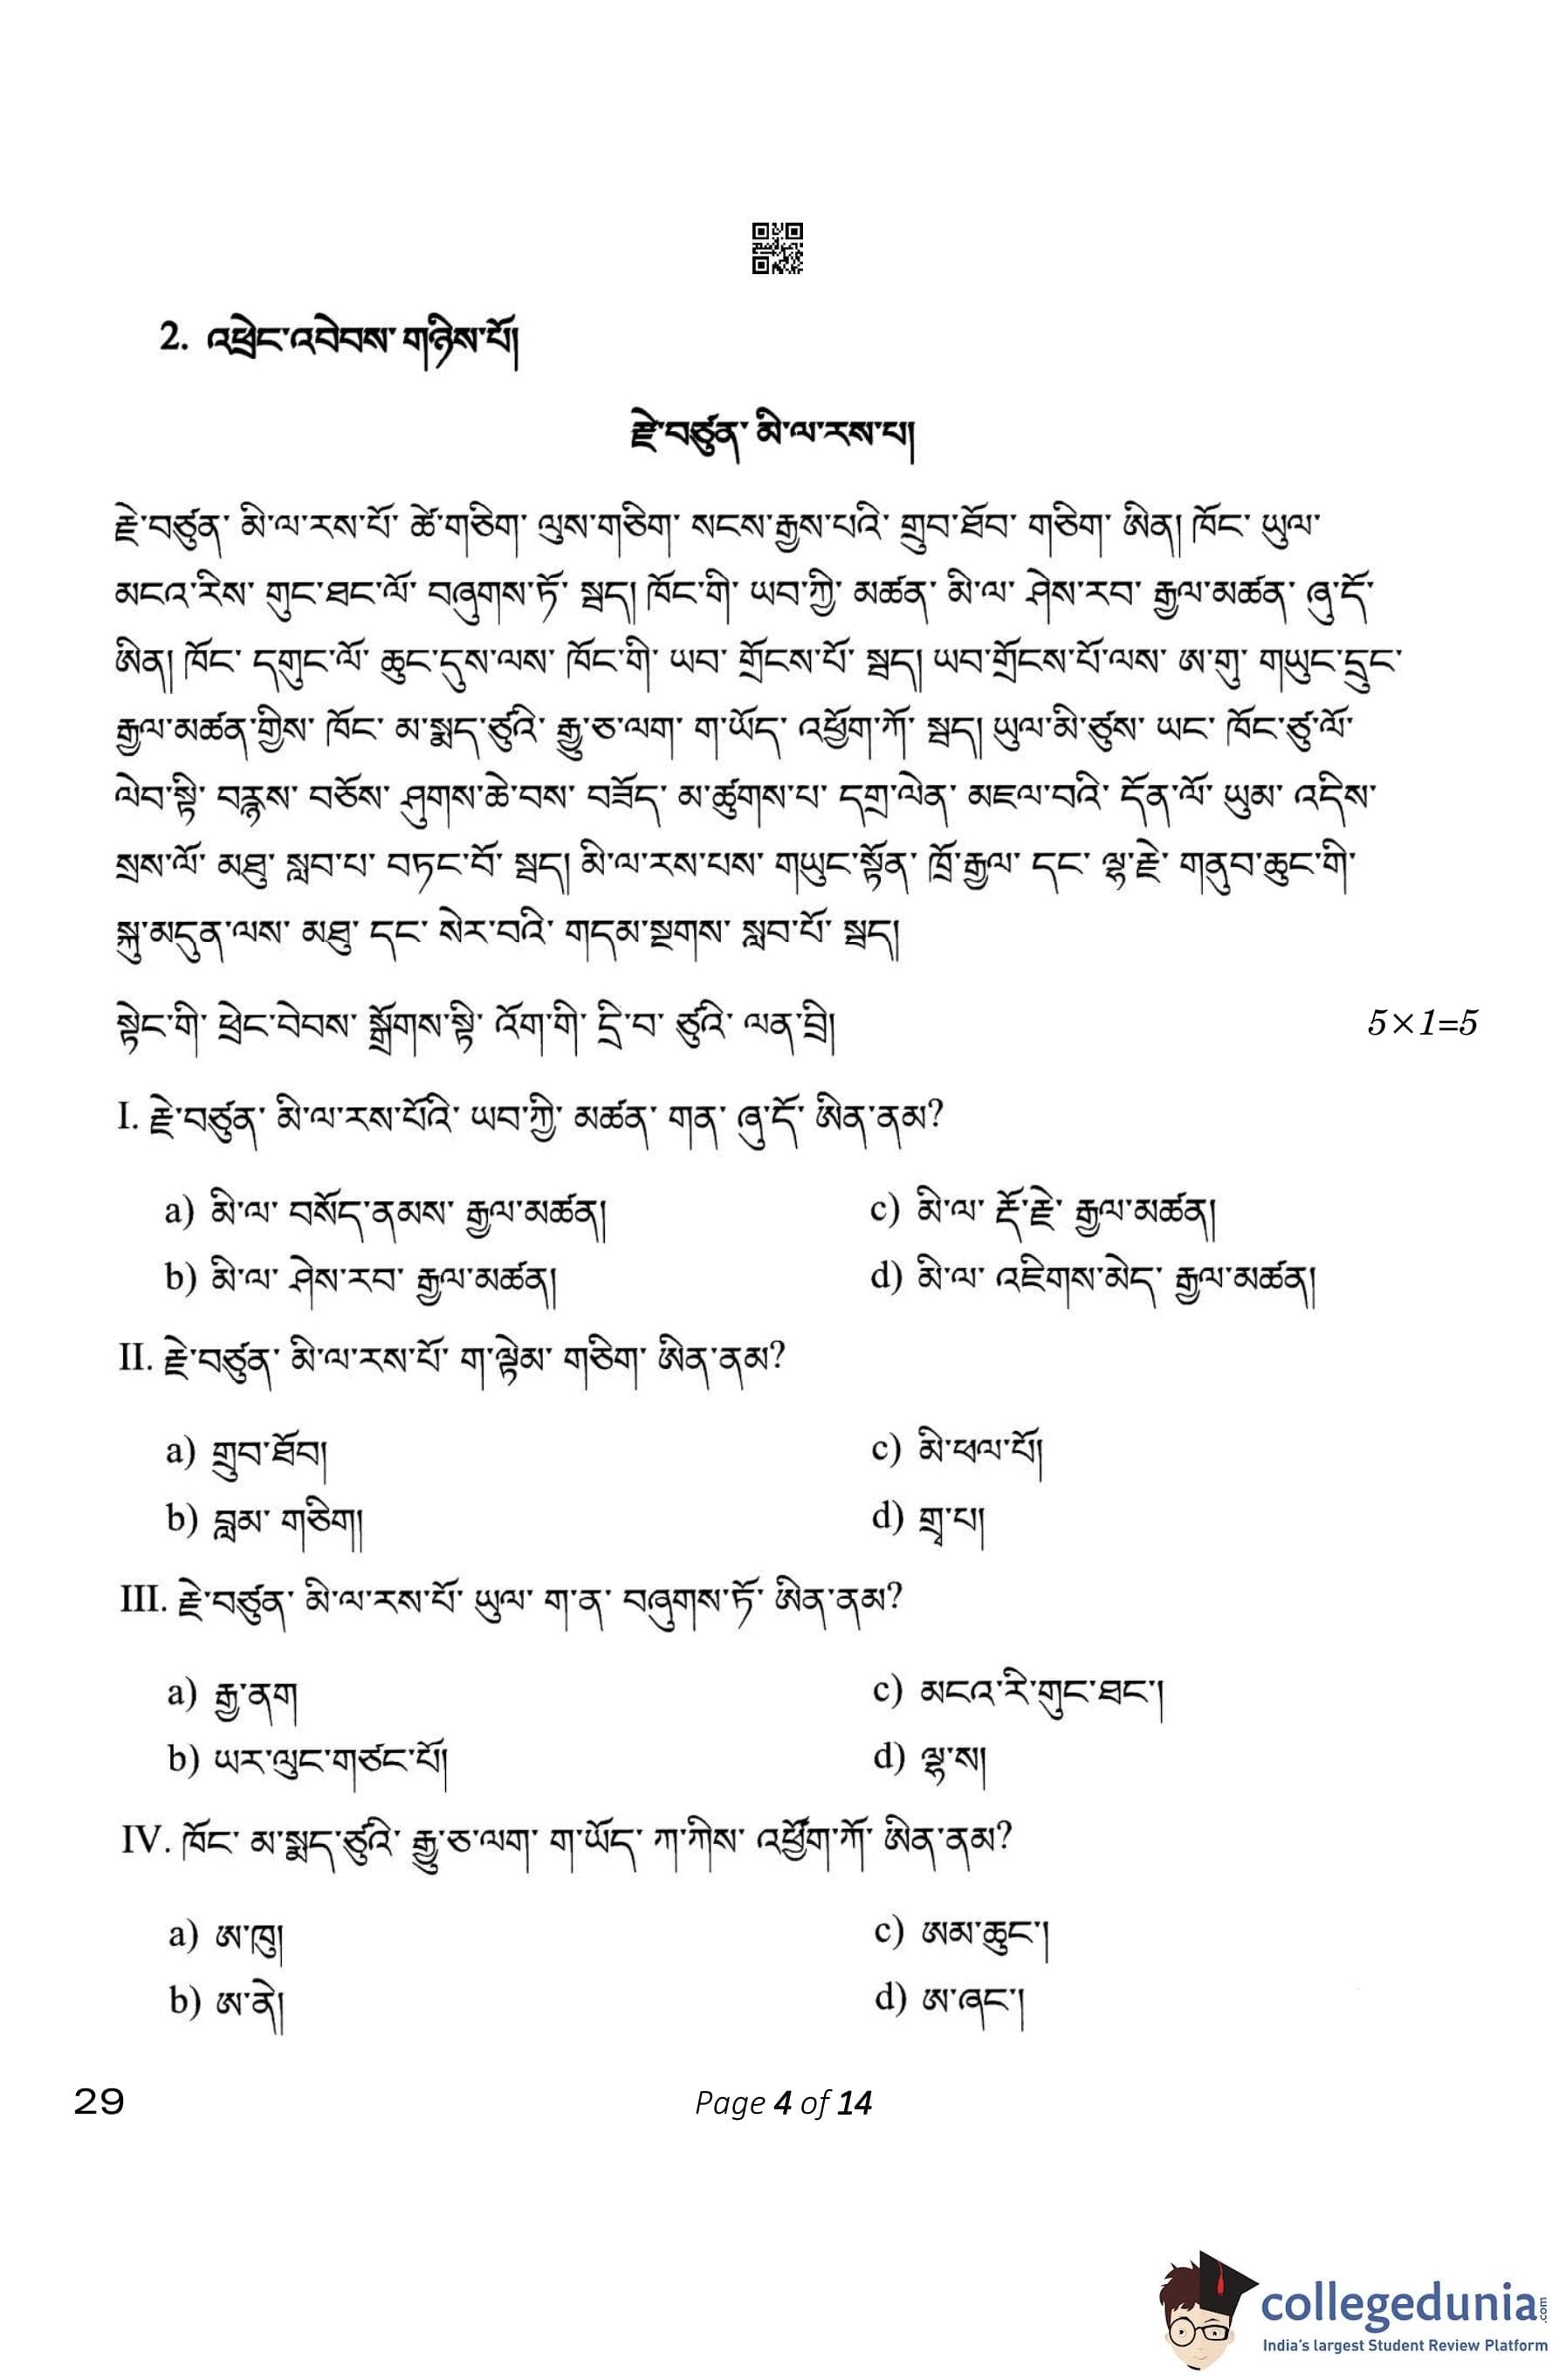 2. འཕྲེང་འབེབས་ གཉིས་པོ།
རྗེ་བཙུན་ མི་ལ་རས་པ།
རྗེ་བཙུན་ མི་ལ་རས་པོ་ ཚེ་གཅིག་ ལུས་གཅིག་ སངས་རྒྱས་པའི་ གྲུབ་ཐོབ་ གཅིག་ ཨིན། ཁོང་ ཡུལ་
མངའ་རིས་ གུང་ཐང་ལོ་ བཞུགས་ཏོ་ སྦད། ཁོང་གི་ ཡབ་ཀྱི་ མཚན་ མི་ལ་ ཤེས་རབ་ རྒྱལ་མཚན་ ཞུ་དོ་
ཨིན། ཁོང་ དགུང་ལོ་ ཆུང་དུས་ལས་ ཁོང་གི་ ཡབ་ གྲོངས་པོ་ སྦད། ཡབ་གྲོངས་པོ་ལས་ ཨ་གུ་ གཡུང་དྲུང་
རྒྱལ་མཚན་གྱིས་ ཁོང་ མ་སྨད་ཙུའི་ རྒྱུ་ཅ་ལག་ ག་ཡོད་ འཕྱོག་ཀོ་ སྦད། ཡུལ་མི་ཙུས་ ཡང་ ཁོང་ཙུ་ལོ་
ལེབ་སྟི་ བརྙས་ བཅོས་ ཤུགས་ཆེ་བས་ བཟོད་ མ་ཚུགས་པ་ དགྲ་ལེན་ མཇལ་བའི་ དོན་ལོ་ ཡུམ་ འདིས་
སྲས་ལོ་ མཐུ་ སླབ་པ་ བཏང་བོ་ སྦད། མི་ལ་རས་པས་ གཡུང་སྟོན་ ཁྲོ་རྒྱལ་ དང་ ལྷ་རྗེ་ གནུབ་ཆུང་གི་
སྐུ་མདུན་ལས་ མཐུ་ དང་ སེར་བའི་ གདམ་སྔགས་ སླབ་པོ་ སྦད།
སྟེང་གི་ ཕྲེང་བེབས་ སྒྲོགས་སྟི་ འོག་གི་ དྲི་བ་ ཙུའི་ ལན་བྲི། 5×1=5
I. རྗེ་བཙུན་ མི་ལ་རས་པོའི་ ཡབ་ཀྱི་ མཚན་ གན་ ཞུ་དོ་ ཨིན་ནམ?
a) མི་ལ་ བསོད་ནམས་ རྒྱལ་མཚན། c) མི་ལ་ རྡོ་རྗེ་ རྒྱལ་མཚན།
b) མི་ལ་ ཤེས་རབ་ རྒྱལ་མཚན། d) མི་ལ་ འཇིགས་མེད་ རྒྱལ་མཚན།
II. རྗེ་བཙུན་ མི་ལ་རས་པོ་ ག་ལྟེམ་ གཅིག་ ཨིན་ནམ?
a) གྲུབ་ཐོབ། c) མི་ཕལ་པོ།
b) བླམ་ གཅིག། d) གྲྭ་པ།
III. རྗེ་བཙུན་ མི་ལ་རས་པོ་ ཡུལ་ ག་ན་ བཞུགས་ཏོ་ ཨིན་ནམ?
a) རྒྱ་ནག c) མངའ་རི་གུང་ཐང་།
b) ཡར་ལུང་གཙང་པོ། d) ལྷ་ས།
IV. ཁོང་ མ་སྨད་ཙུའི་ རྒྱུ་ཅ་ལག་ ག་ཡོད་ ཀ་ཀིས་ འཕྱོག་ཀོ་ ཨིན་ནམ?
a) ཨ་ཁུ། c) ཨམ་ཆུང་།
b) ཨ་ནེ། d) ཨ་ཞང་།
29 Page 4 of 14
collegedunia.com
India's largest Student Review Platform